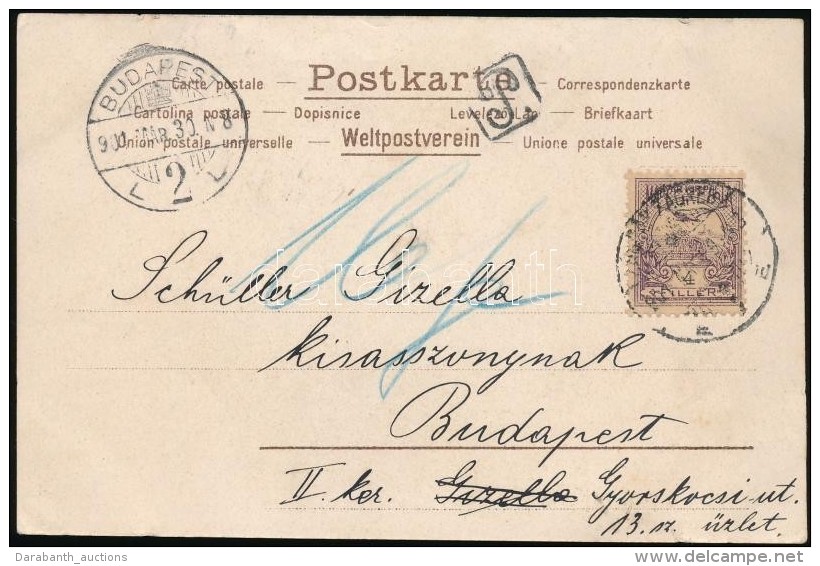 Carte postale — Postkarte — Correspondenzkarte
Cartolina postale — Dopisnice Levelező-Lap — Briefkaart
Union postale universelle — Weltpostverein — Unione postale universale
BUDAPEST
901 MAR 30 N 8
2
ZÁGRÁB
4
FILLÉR
Schüller Gizella
kisasszonynak
Budapest
II. ker. Gizella Gyorskocsi ut.
13. sz. üzlet.
darabanth
Darabanth_auctions
delcampe.net